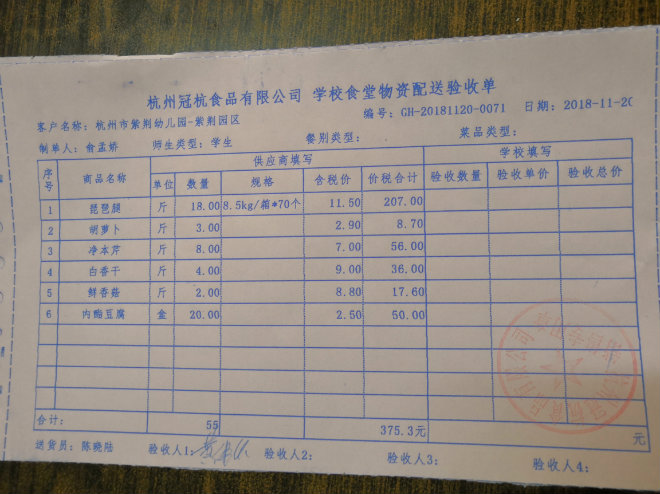 杭州冠杭食品有限公司 学校食堂物资配送验收单
客户名称: 杭州市紫荆幼儿园-紫荆园区 编号: GH-20181120-0071 日期: 2018-11-20
制单人: 俞孟娇 师生类型: 学生 餐别类型: 菜品类型:
序号 商品名称 供应商填写 学校填写
单位 数量 规格 含税价 价税合计 验收数量 验收单价 验收总价
1 琵琶腿 斤 18.00 8.5kg/箱*70个 11.50 207.00
2 胡萝卜 斤 3.00 2.90 8.70
3 净本芹 斤 8.00 7.00 56.00
4 白香干 斤 4.00 9.00 36.00
5 鲜香菇 斤 2.00 8.80 17.60
6 内酯豆腐 盒 20.00 2.50 50.00
合计: 55 375.3元 元
送货员: 陈晓陆 验收人1: 验收人2: 验收人3: 验收人4: